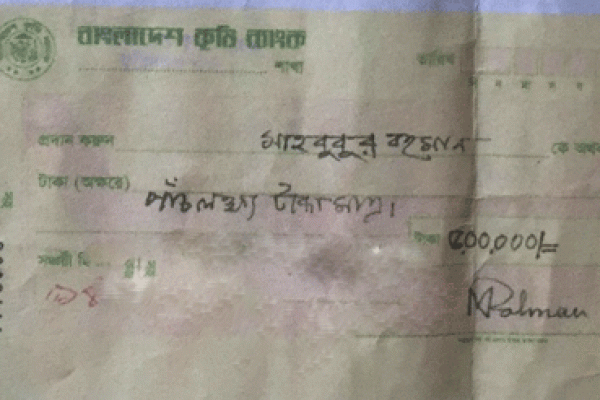 বাংলাদেশ কৃষি ব্যাংক
শাখা
তারিখ
প্রদান করুন মাহবুবুর রহমান কে অথবা
টাকা (অক্ষরে) পাঁচ লক্ষ্য টাকা মাত্র।
টাকা ৫০০,০০০/=
সঞ্চয়ী হি
১৯৪